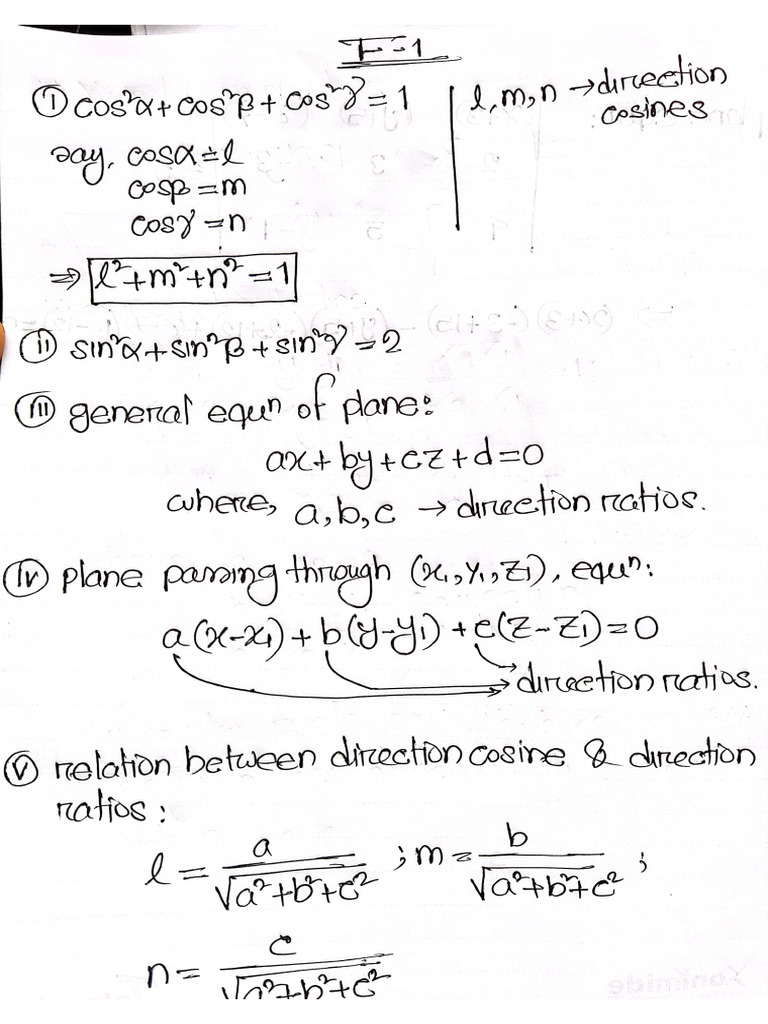 F-1
(i) cos²α + cos²β + cos²γ = 1 | l, m, n → direction cosines
say, cosα = l
cosβ = m
cosγ = n
⇒ l² + m² + n² = 1
(ii) sin²α + sin²β + sin²γ = 2
(iii) general equn of plane:
ax + by + cz + d = 0
where, a, b, c → direction ratios.
(iv) plane passing through (x₁, y₁, z₁), equn:
a(x-x₁) + b(y-y₁) + c(z-z₁) = 0
→ direction ratios.
(v) relation between direction cosine & direction
ratios:
l = a/√(a²+b²+c²) ; m = b/√(a²+b²+c²) ;
n = c/√(a²+b²+c²)